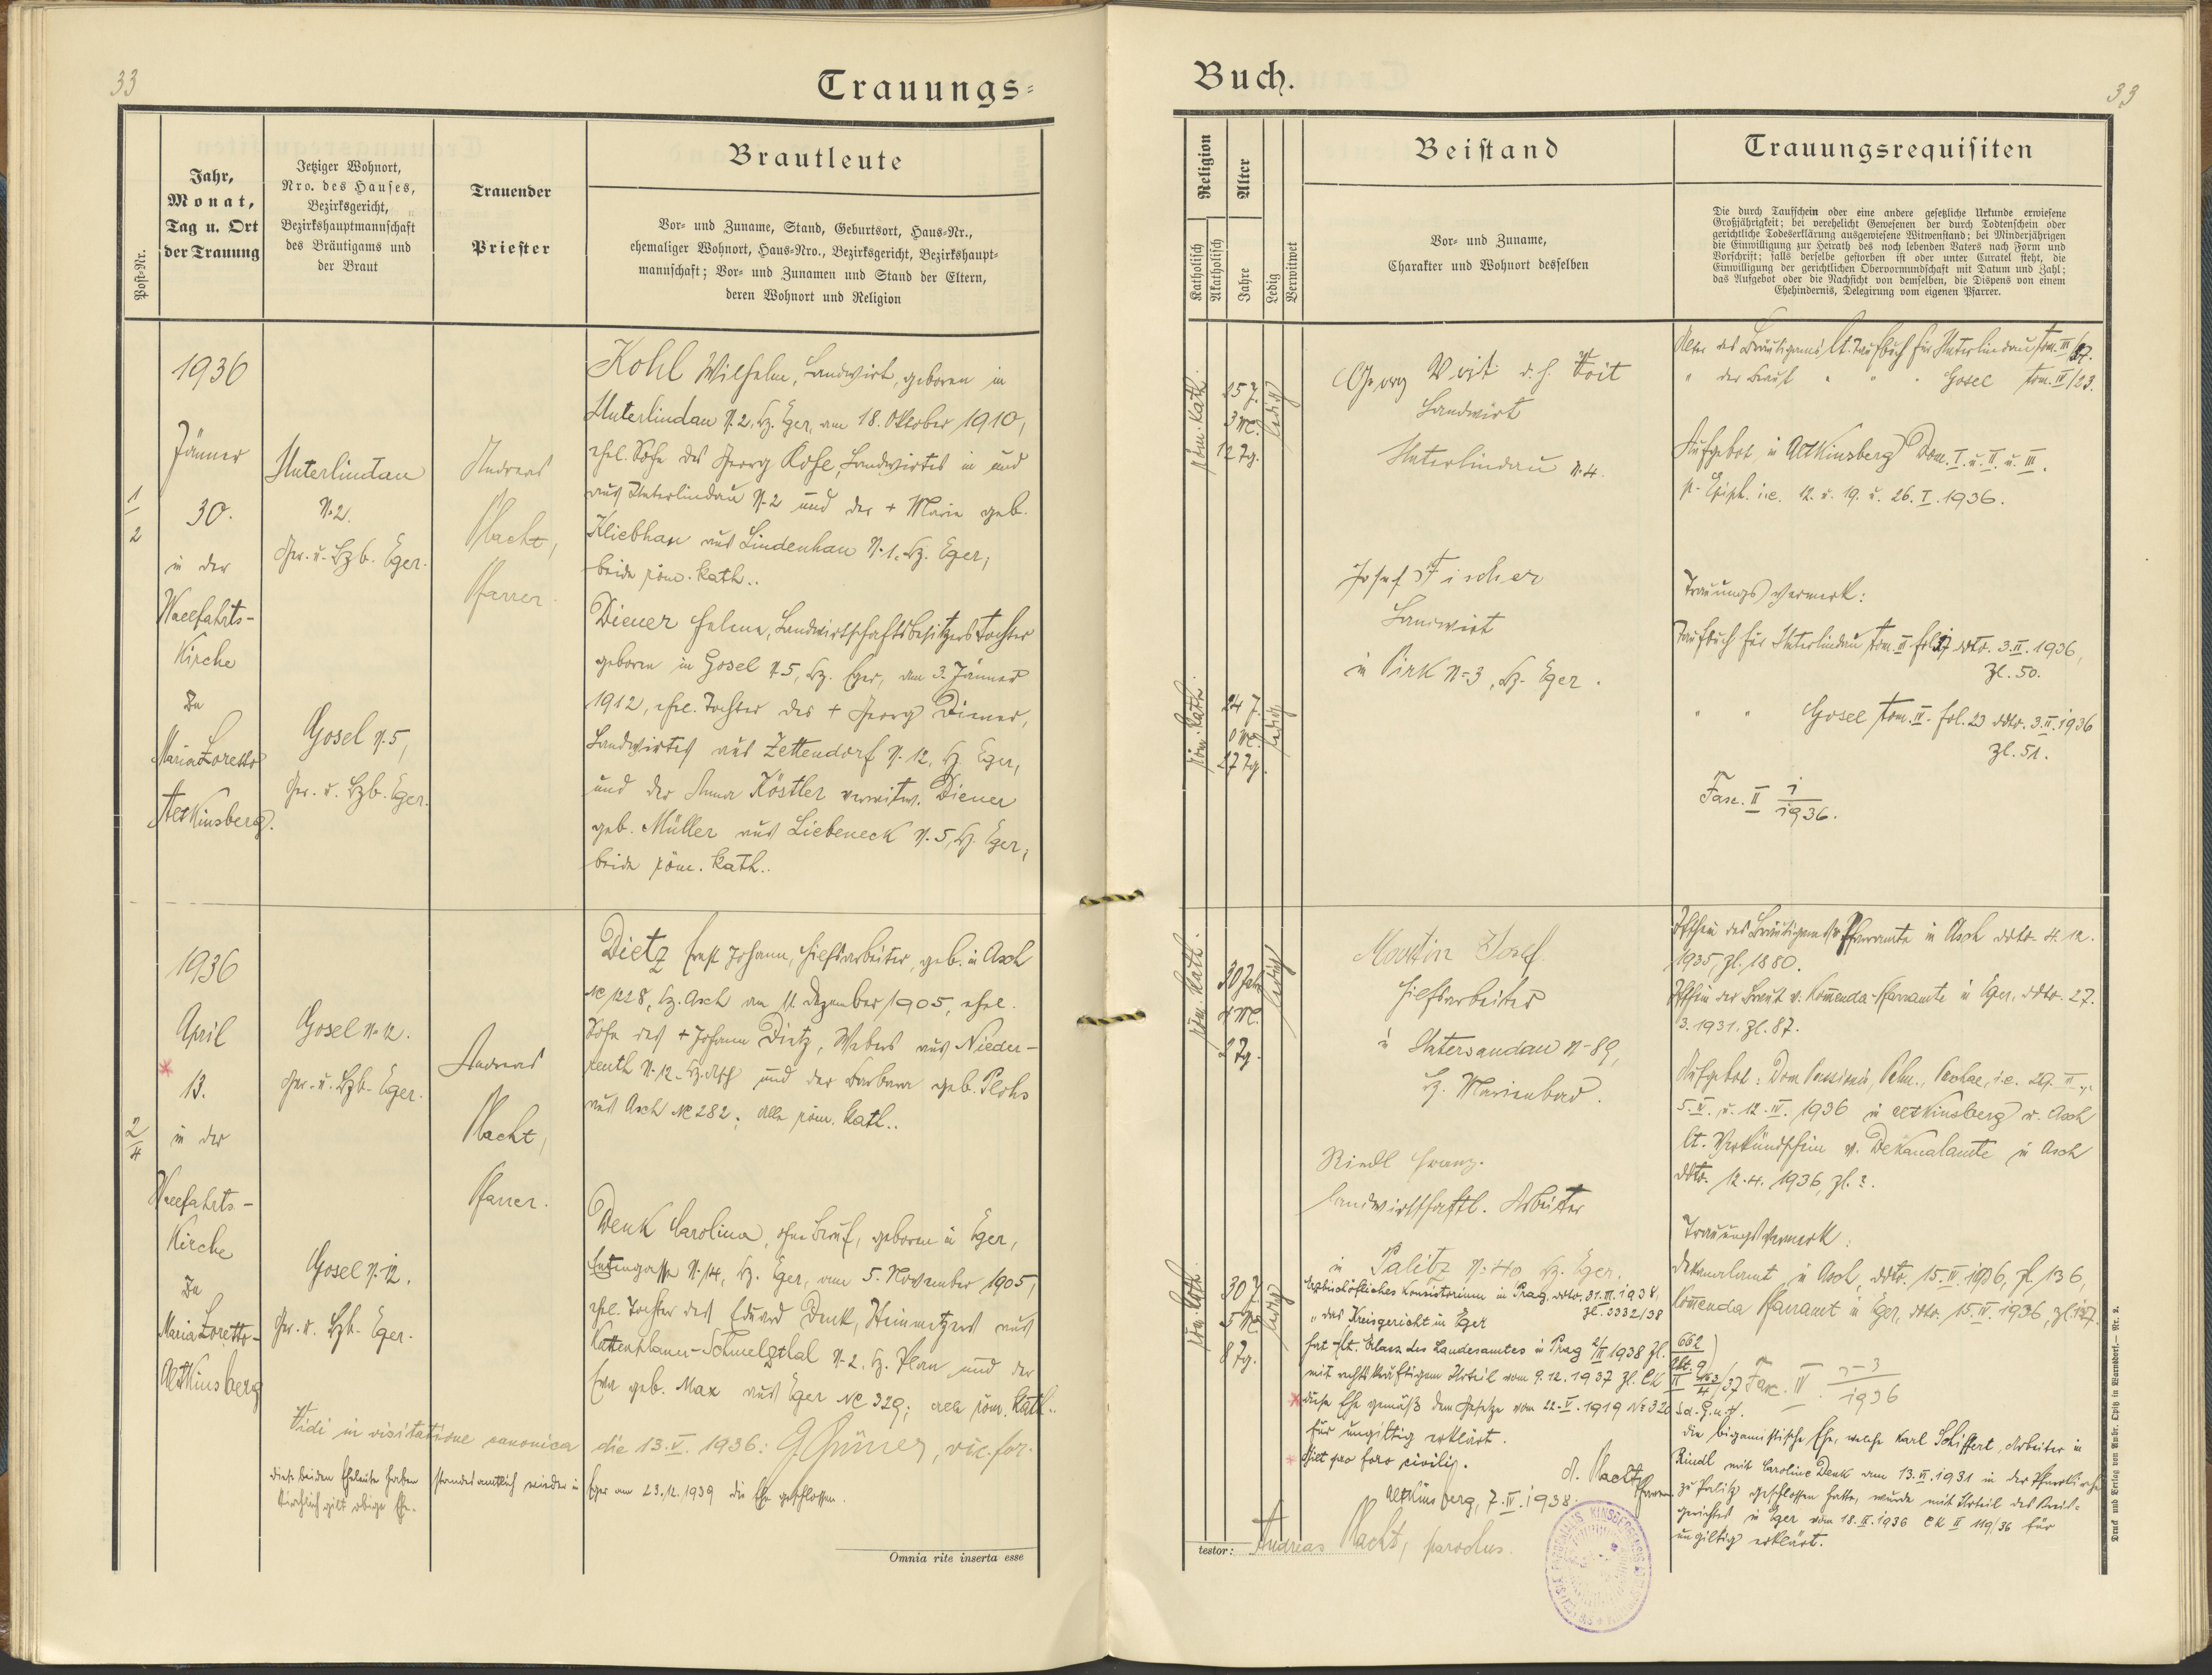 33
Trauungs-
Post-Nr.
Jahr,
Monat,
Tag u. Ort
der Trauung
Jetziger Wohnort,
Nro. des Hauses,
Bezirksgericht,
Bezirkshauptmannschaft
des Bräutigams und
der Braut
Trauender
Priester
Brautleute
Vor- und Zuname, Stand, Geburtsort, Haus-Nr.,
ehemaliger Wohnort, Haus-Nro., Bezirksgericht, Bezirkshaupt-
mannschaft; Vor- und Zunamen und Stand der Eltern,
deren Wohnort und Religion
1/2
1936
Jänner
30.
in der
Wallfahrts-
Kirche
Zu
Maria Loretto
AltKinsberg.
Unterlindau
N. 2.
Ger. u. Bzb. Eger.
Gosel N. 5,
Ger. u. Bzb. Eger.
Andreas
Macht,
Pfarrer.
Kohl Wilhelm, Landwirt, geboren in
Unterlindau N. 2, Bz. Eger, am 18. Oktober 1910,
ehel. Sohn des Georg Kohl, Landwirtes in und
aus Unterlindau N. 2 und der + Marie geb.
Kliebhan aus Lindenhau N. 1. Bz. Eger;
beide röm. kath..
Diener Helene, Landwirtschaftsbesitzerstochter
geboren in Gosel N. 5, Bz. Eger, am 3. Jänner
1912, ehel. Tochter des + Georg Diener,
Landwirtes aus Zettendorf N. 12, Bz. Eger,
und der Anna Köstler verwitw. Diener
geb. Müller aus Liebeneck N. 5, Bz. Eger;
beide röm. kath..
2/4
1936
April
13.
in der
Wallfahrts-
Kirche
Zu
Maria Loretto-
AltKinsberg
Gosel N. 12.
Ger. u. Bzb. Eger.
Gosel N. 12.
Ger. u. Bzb. Eger.
Andreas
Macht,
Pfarrer.
Dietz Ernst Johann, Hilfsarbeiter, geb. in Asch
No 1228, Bz. Asch am 11. Dezember 1905, ehel.
Sohn des + Johann Dietz, Webers aus Nieder-
reuth N. 12. Bz. Asch und der Barbara geb. Ploss
aus Asch No 282; alle röm. kath..
Denk Carolina, ohne Beruf, geboren in Eger,
N. 14, Bz. Eger, am 5. November 1905,
ehel. Tochter des Eduard Denk, Steinmetzers aus
Kuttenplaner-Schmelzthal N. 2. Bz. Plan und der
Eva geb. Max aus Eger No 329; alle röm. kath..
Vidi in visitatione canonica die 13. V. 1936: G. Grüner, vic. for.
Diese beiden Eheleute haben standesamtlich wieder in Eger am 23.12.1939 die Ehe geschlossen.
Kirchlich gilt obige Ehe.
Omnia rite inserta esse
Buch.
33
Religion
Katholisch
Akatholisch
Alter
Jahre
Ledig
Verwitwet
Beistand
Vor- und Zuname,
Charakter und Wohnort desselben
Trauungsrequisiten
Die durch Taufschein oder eine andere gesetzliche Urkunde erwiesene
Großjährigkeit; bei verehelicht Gewesenen der durch Todtenschein oder
gerichtliche Todeserklärung ausgewiesene Witwenstand; bei Minderjährigen
die Einwilligung zur Heirath des noch lebenden Vaters nach Form und
Vorschrift; falls derselbe gestorben ist oder unter Curatel steht, die
Einwilligung der gerichtlichen Obervormundschaft mit Datum und Zahl;
das Aufgebot oder die Nachsicht von demselben, die Dispens von einem
Ehehindernis, Delegirung vom eigenen Pfarrer.
röm. kath.
25 J.
3 M.
12 Tg.
ledig
röm. kath.
24 J.
0 M.
27 Tg.
ledig
Georg Voit d. h. Voit
Landwirt
Unterlindau N. 4.
Josef Fischer
Landwirt
in Pirk N. 3, Bz. Eger.
Alter des Bräutigams lt. Taufbuch für Unterlindau tom. III/27.
" der Braut " " " Gosel tom. IV/23.
Aufgebot in AltKinsberg Dom. I. u. II. u. III.
p. Epiph. i.e. 12. u. 19. u. 26. I. 1936.
Trauungsvermerk:
Taufbuch für Unterlindau tom. II fol. 27 ddto. 3.II.1936,
Zl. 50.
" " Gosel tom. IV. fol. 23 ddto. 3.II.1936
Zl. 51.
Fasc. II 1/1936.
röm. kath.
30 Jah.
4 M.
2 Tg.
ledig
röm. kath.
30 J.
5 M.
8 Tg.
ledig
Martin Josef
Hilfsarbeiter
in Untersandau N. 89,
Bz. Marienbad.
Riedl Franz.
landwirtschaftl. Arbeiter
in Palitz N. 40 Bz. Eger.
Erzbischöfliches Konsistorium in Prag, ddto. 31.III.1938,
Zl. 3332/38
" das Kreisgericht in Eger
hat lt. Erlass des Landesamtes in Prag 2/III 1938 Zl. 662
mit rechtskräftigem Urteil vom 9.12.1937 Zl. CK II 163/4/37
diese Ehe gemäß dem Gesetze vom 22.V.1919 No 320 Sd. G. u. V.
für ungiltig erklärt.
Gilt pro foro civili.
A. Macht
Pfarrer
AltKinsberg, 7.IV.1938.
testor: Andreas Macht, parochus.
Tfschein des Bräutigams v. Pfarramte in Asch ddto. 4.12.
1935, Zl. 1880.
Tfschein der Braut v. Komenda-Pfarramte in Eger, ddto. 27.
3.1931. Zl. 87.
Aufgebot: Dom. Passionis, Palm., Paschae, i.e. 29. III.,
5. IV. u. 12. IV. 1936 in AltKinsberg u. Asch
lt. Verkündschein v. Dekanalamte in Asch
ddto. 12.4.1936, Zl. ?.
Trauungsvermerk:
Dekanalamt in Asch, ddto. 15.IV.1936, Zl. 136,
Komenda Pfarramt in Eger, ddto. 15.IV.1936, Zl. 137.
Fasc. II. 2-3/1936
die bigamistische Ehe, welche Karl Schiffert, Arbeiter in
Rindl mit Caroline Denk am 13.VI.1931 in der Pfarrkirche
zu Palitz geschlossen hatte, wurde mit Urteil des Kreis-
gerichtes in Eger vom 18.III.1936 CK II 119/36 für
ungiltig erklärt.
Druck und Verlag von Ambr. Opitz in Warnsdorf.— Nr. 2.